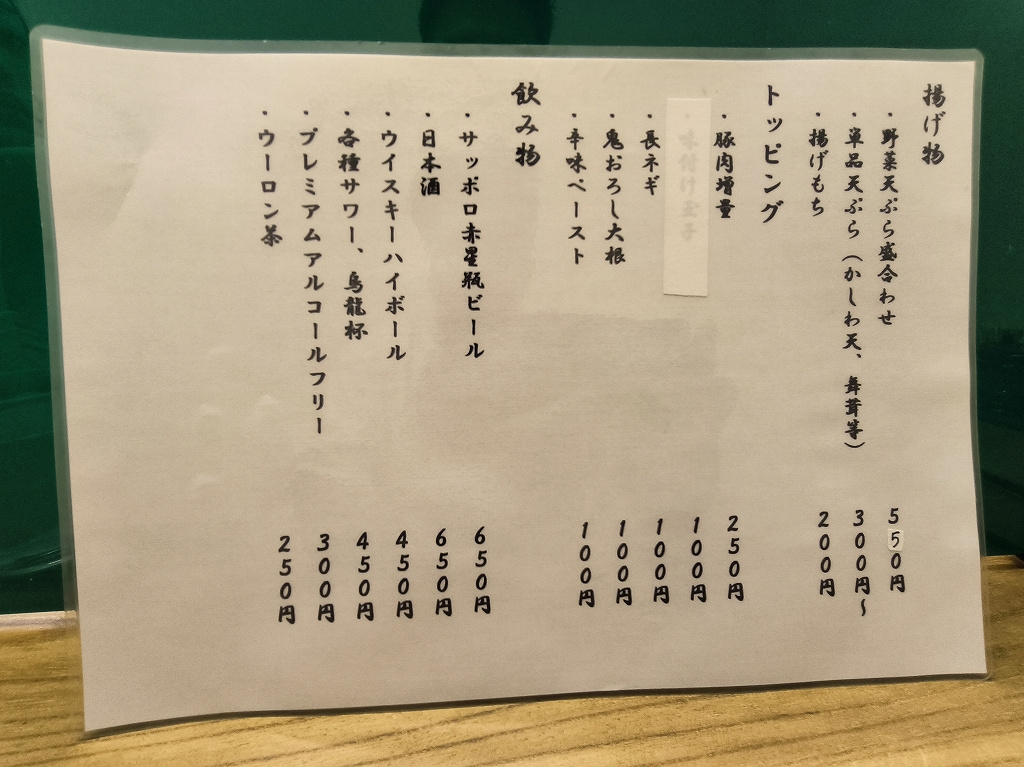 揚げ物
・野菜天ぷら盛合わせ 550円
・単品天ぷら（かしわ天、舞茸等） 300円～
・揚げもち 200円
トッピング
・豚肉増量 250円
・味付け玉子 100円
・長ネギ 100円
・鬼おろし大根 100円
・辛味ペースト 100円
飲み物
・サッポロ赤星瓶ビール 650円
・日本酒 650円
・ウイスキーハイボール 450円
・各種サワー、烏龍杯 450円
・プレミアムアルコールフリー 300円
・ウーロン茶 250円